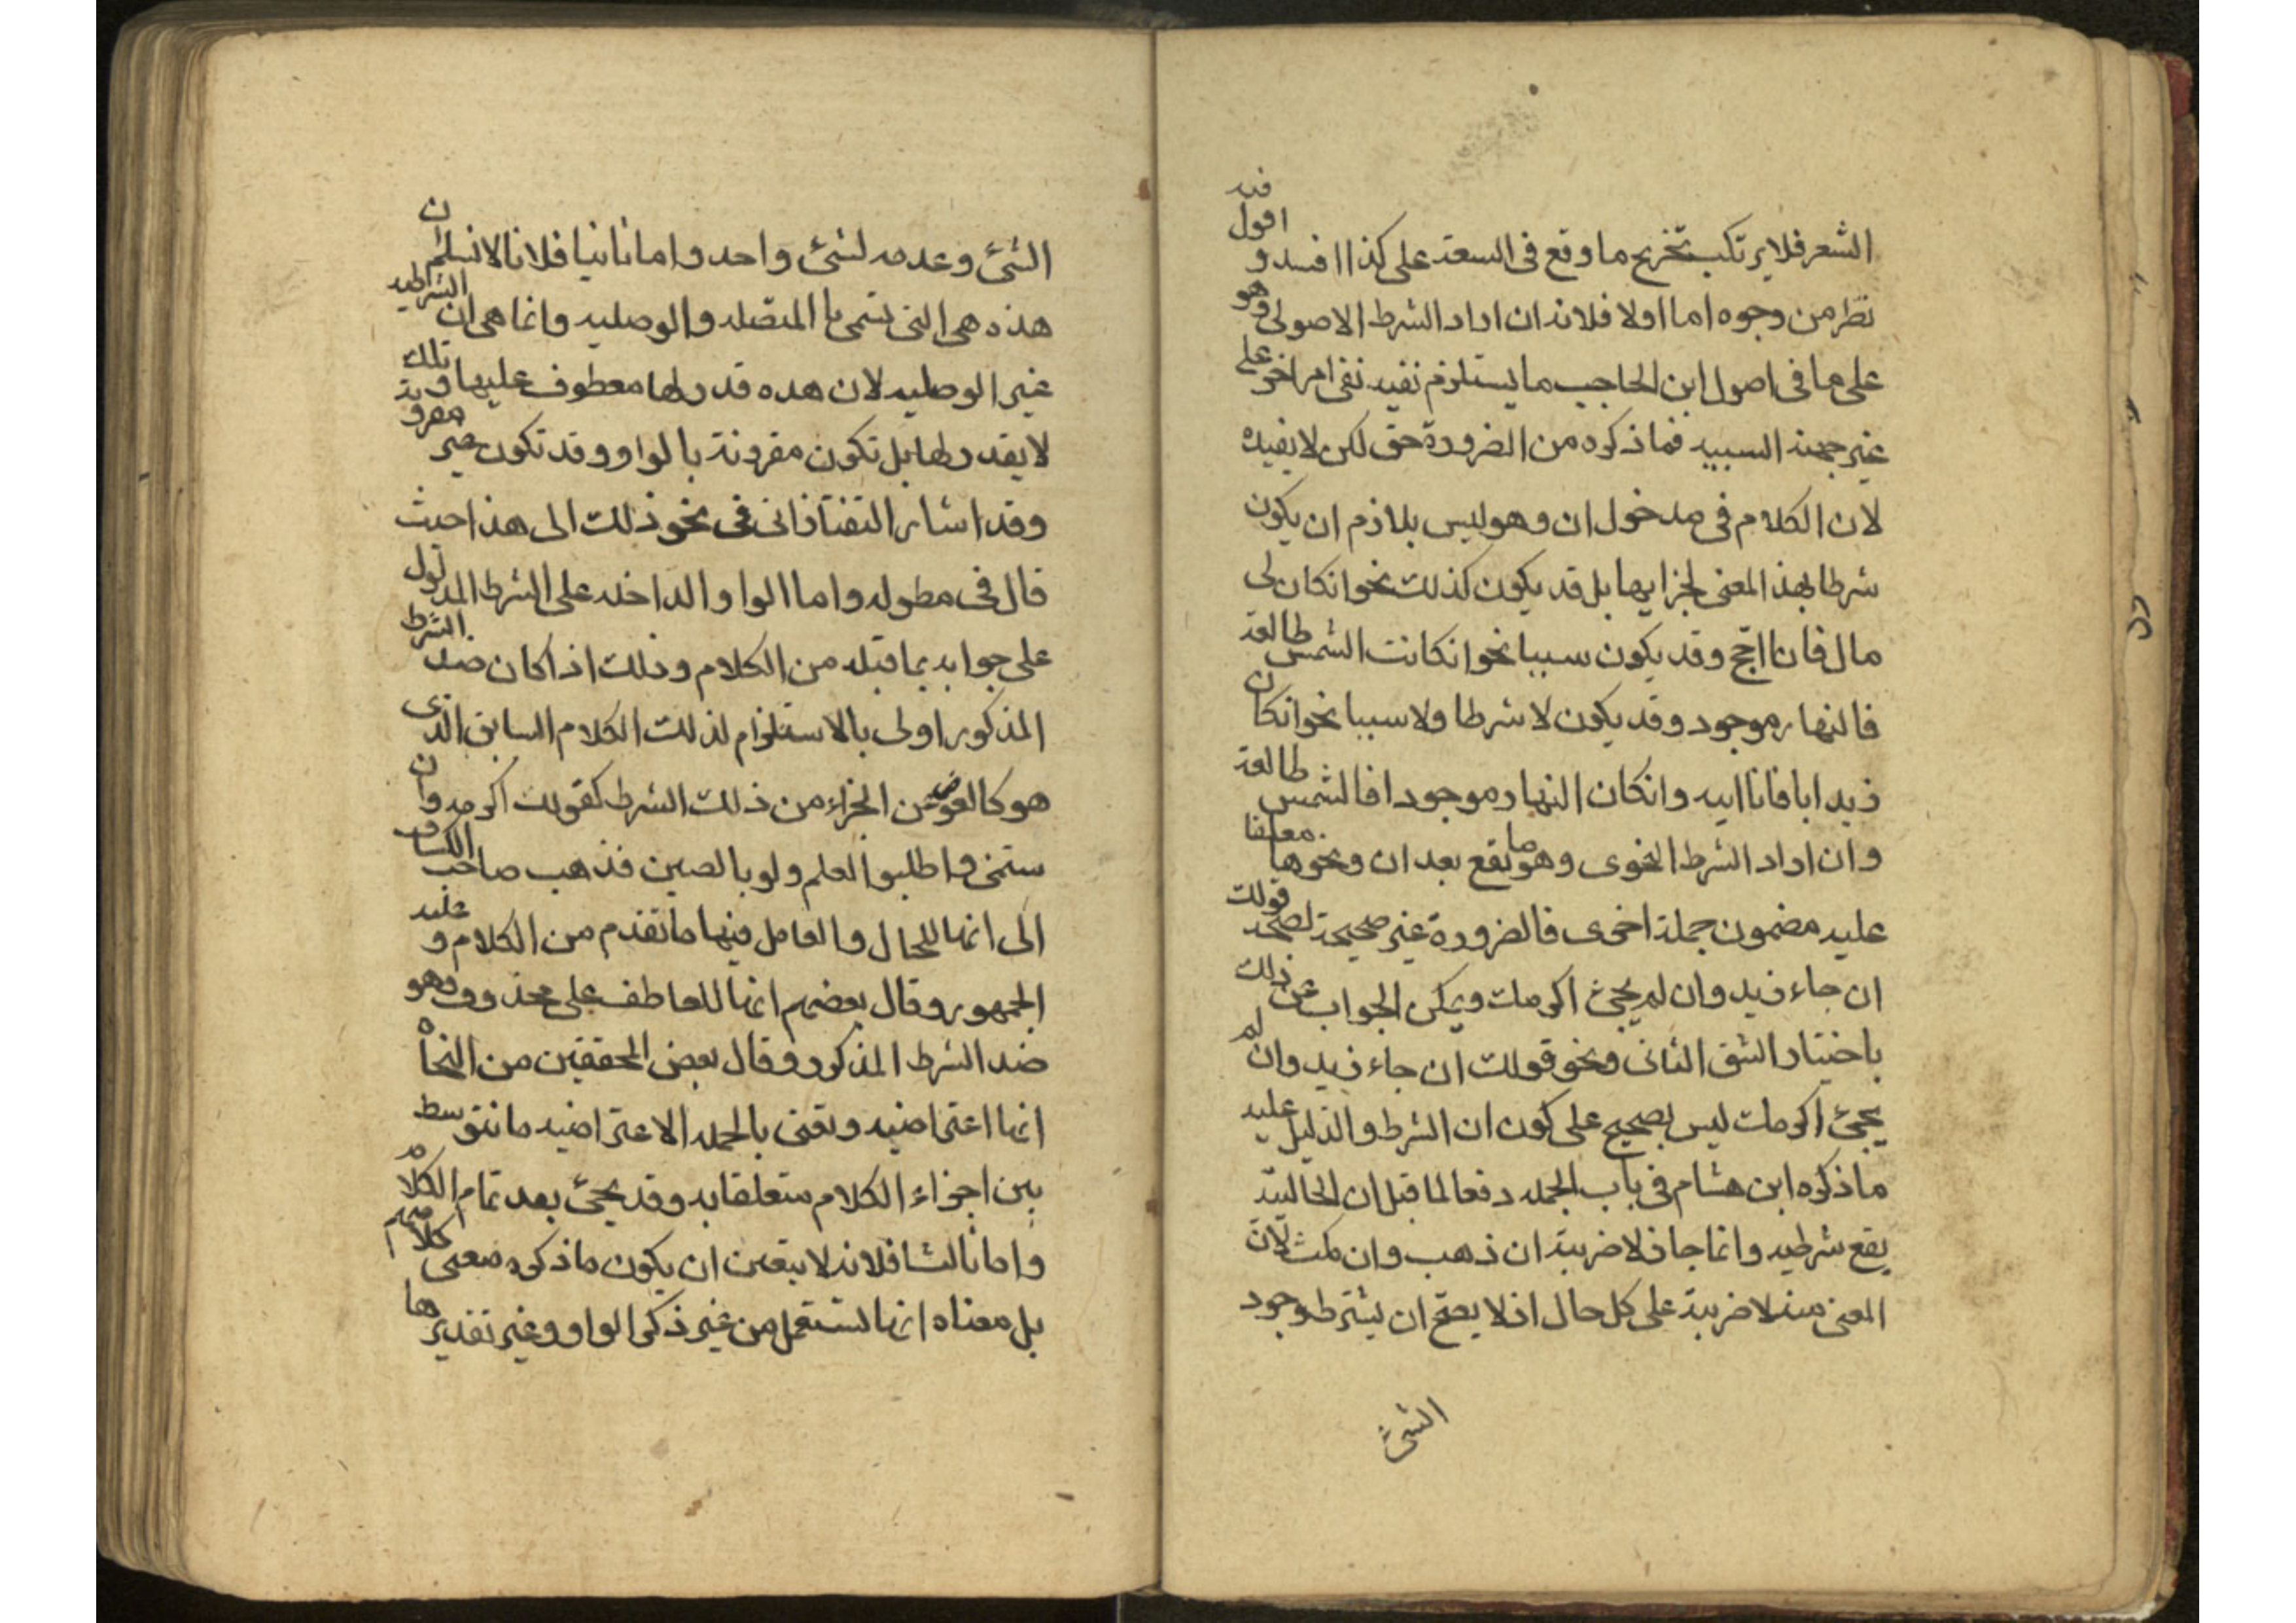 الشعر فلا يرتكب تخريج ما وقع فى السعة على كذا ا فسد و اقول فيه
نظر من وجوه اما اولا فلانه ان اراد الشرط الاصولى وهو
على ما فى اصول ابن الحاجب ما يستلزم نفيه نفى امر اخر على
غير جهة السببيه فما ذكره من الضرورة حق لكن لا يفيده
لان الكلام فى مدخول ان وهو ليس بلازم ان يكون
شرطا بهذ المعنى لجزايها بل قد يكون كذلك نحو انكان لى
مال فانا احج وقد يكون سببا نحو انكانت الشمس طالعة
فالنهار موجود وقد يكون لا شرطا ولا سببا نحو انكان
زيد ابا فانا ابيه وانكان النهار موجود افا الشمس طالعة
وان اراد الشرط النحوى وهو ما يقع بعد ان ونحوها معلقا
عليه مضمون جملة اخرى فالضرورة غير صحيحة لصحة قولك
ان جاء زيد وان لم يجئ اكرمك ويمكن الجواب عن ذلك
باختيار الشق الثانى ونحو قولك ان جاء زيد وان لم
يجئ اكرمك ليس بصحيح على كون ان الشرط والدليل عليه
ما ذكره ابن هشام فى باب الجمله دفعا لما قبل ان الحالية
يقع شرطيه وانما جاز لاضربنه ان ذهب وان مكث لان
المعنى منه لاضربنه على كل حال اذ لا يصح ان يشترط وجود
الشئ
الشئ وعدمه لشئ واحد واما ثانيا فلانا لا نسلم ان
هذه هى التى تسمى با المتصله والوصليه وانما هى ان الشرطيه
غير الوصليه لان هده قدر لها معطوف عليها وتلك
لا يقدر لها بل تكون مقرونة بالواو وقد تكون غير مقرونة
وقد اشار التفتازانى فى نحو ذلك الى هذا حيث
قال فى مطوله واما الواو الداخله على الشرط المدلول
على جوابه بما قبله من الكلام وذلك اذا كان ضد الشرط
المذكور اولى بالاستلزام لذلك الكلام السابق الذى
هو كالعوض عن الجزاء من ذلك الشرط كقولك اكرمه وان
ستمنى واطلبوا العلم ولو بالصين فذهب صاحب الكشاف
الى انها للحال والعامل فيها ما تقدم من الكلام وعليه
الجمهور وقال بعضهم انها للعاطف على محذوف وهو
ضد الشرط المذكور وقال بعض المحققين من النحاه
انها اعتراضيه ونعنى بالجمله الاعتراضيه ما نتوسط
بين اجزاء الكلام متعلقا به وقد يجئ بعد تمام الكلام
واما ثالثا فلانه لا يتعين ان يكون ما ذكره معنى كلامهم
بل معناه انها تستعمل من غير ذكر الواو وغير تقديرها